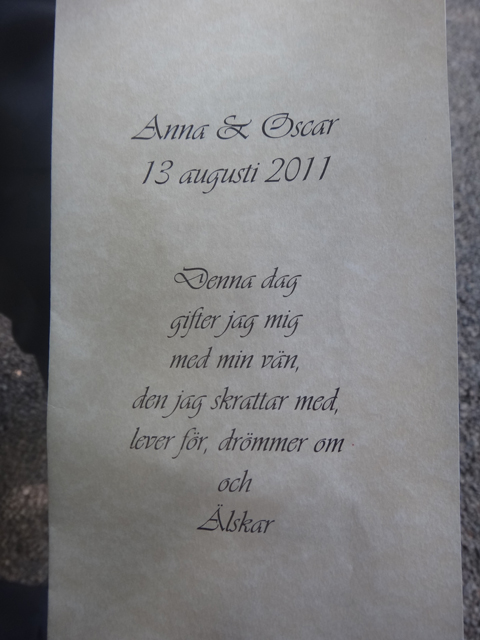 Anna & Oscar
13 augusti 2011
Denna dag
gifter jag mig
med min vän,
den jag skrattar med,
lever för, drömmer om
och
Älskar